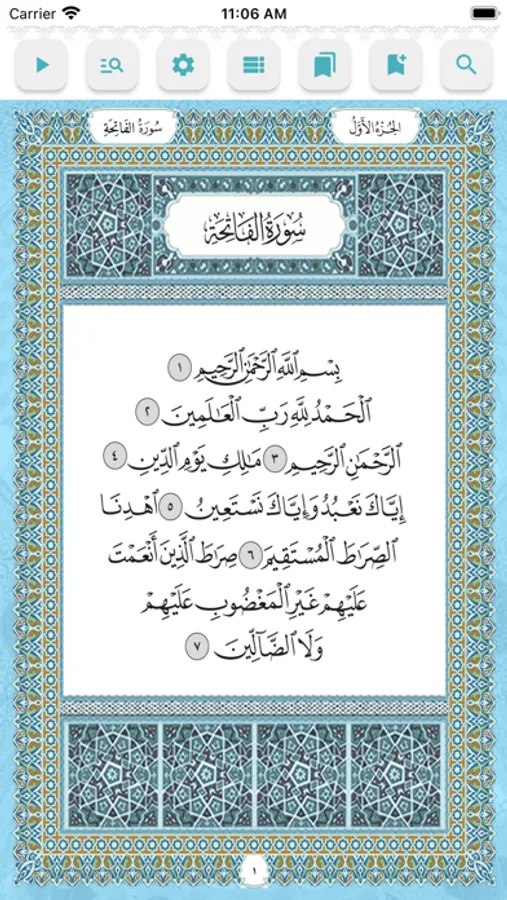 Carrier 11:06 AM
الجُزءُ الأَوَّلُ سُورَةُ الفَاتِحَةِ
سُورَةُ الفَاتِحَةِ
بِسْمِ اللَّهِ الرَّحْمَٰنِ الرَّحِيمِ ١
الْحَمْدُ لِلَّهِ رَبِّ الْعَالَمِينَ ٢
الرَّحْمَٰنِ الرَّحِيمِ ٣ مَالِكِ يَوْمِ الدِّينِ ٤
إِيَّاكَ نَعْبُدُ وَإِيَّاكَ نَسْتَعِينُ ٥ اهْدِنَا
الصِّرَاطَ الْمُسْتَقِيمَ ٦ صِرَاطَ الَّذِينَ أَنْعَمْتَ
عَلَيْهِمْ غَيْرِ الْمَغْضُوبِ عَلَيْهِمْ
وَلَا الضَّآلِّينَ ٧
١